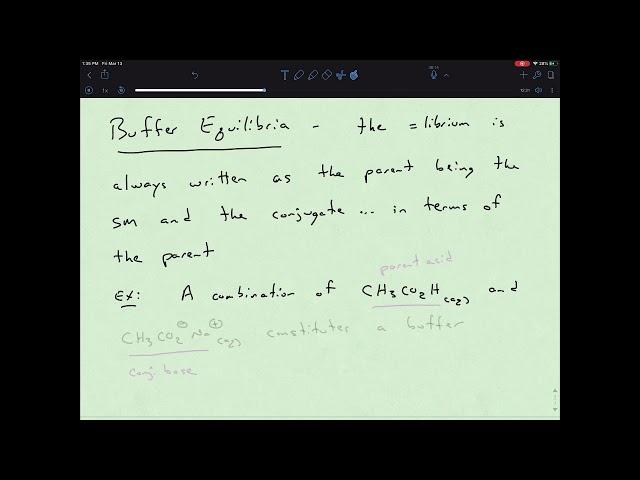 1:35 PM Fri Mar 13
28%
T
1x
12:21
Buffer Equilibria - the =librium is
always written as the parent being the
SM and the conjugate ... in terms of
the parent
parent acid
EX: A combination of CH3CO2H(aq) and
CH3CO2⊖Na⊕(aq) constitutes a buffer
conj. base